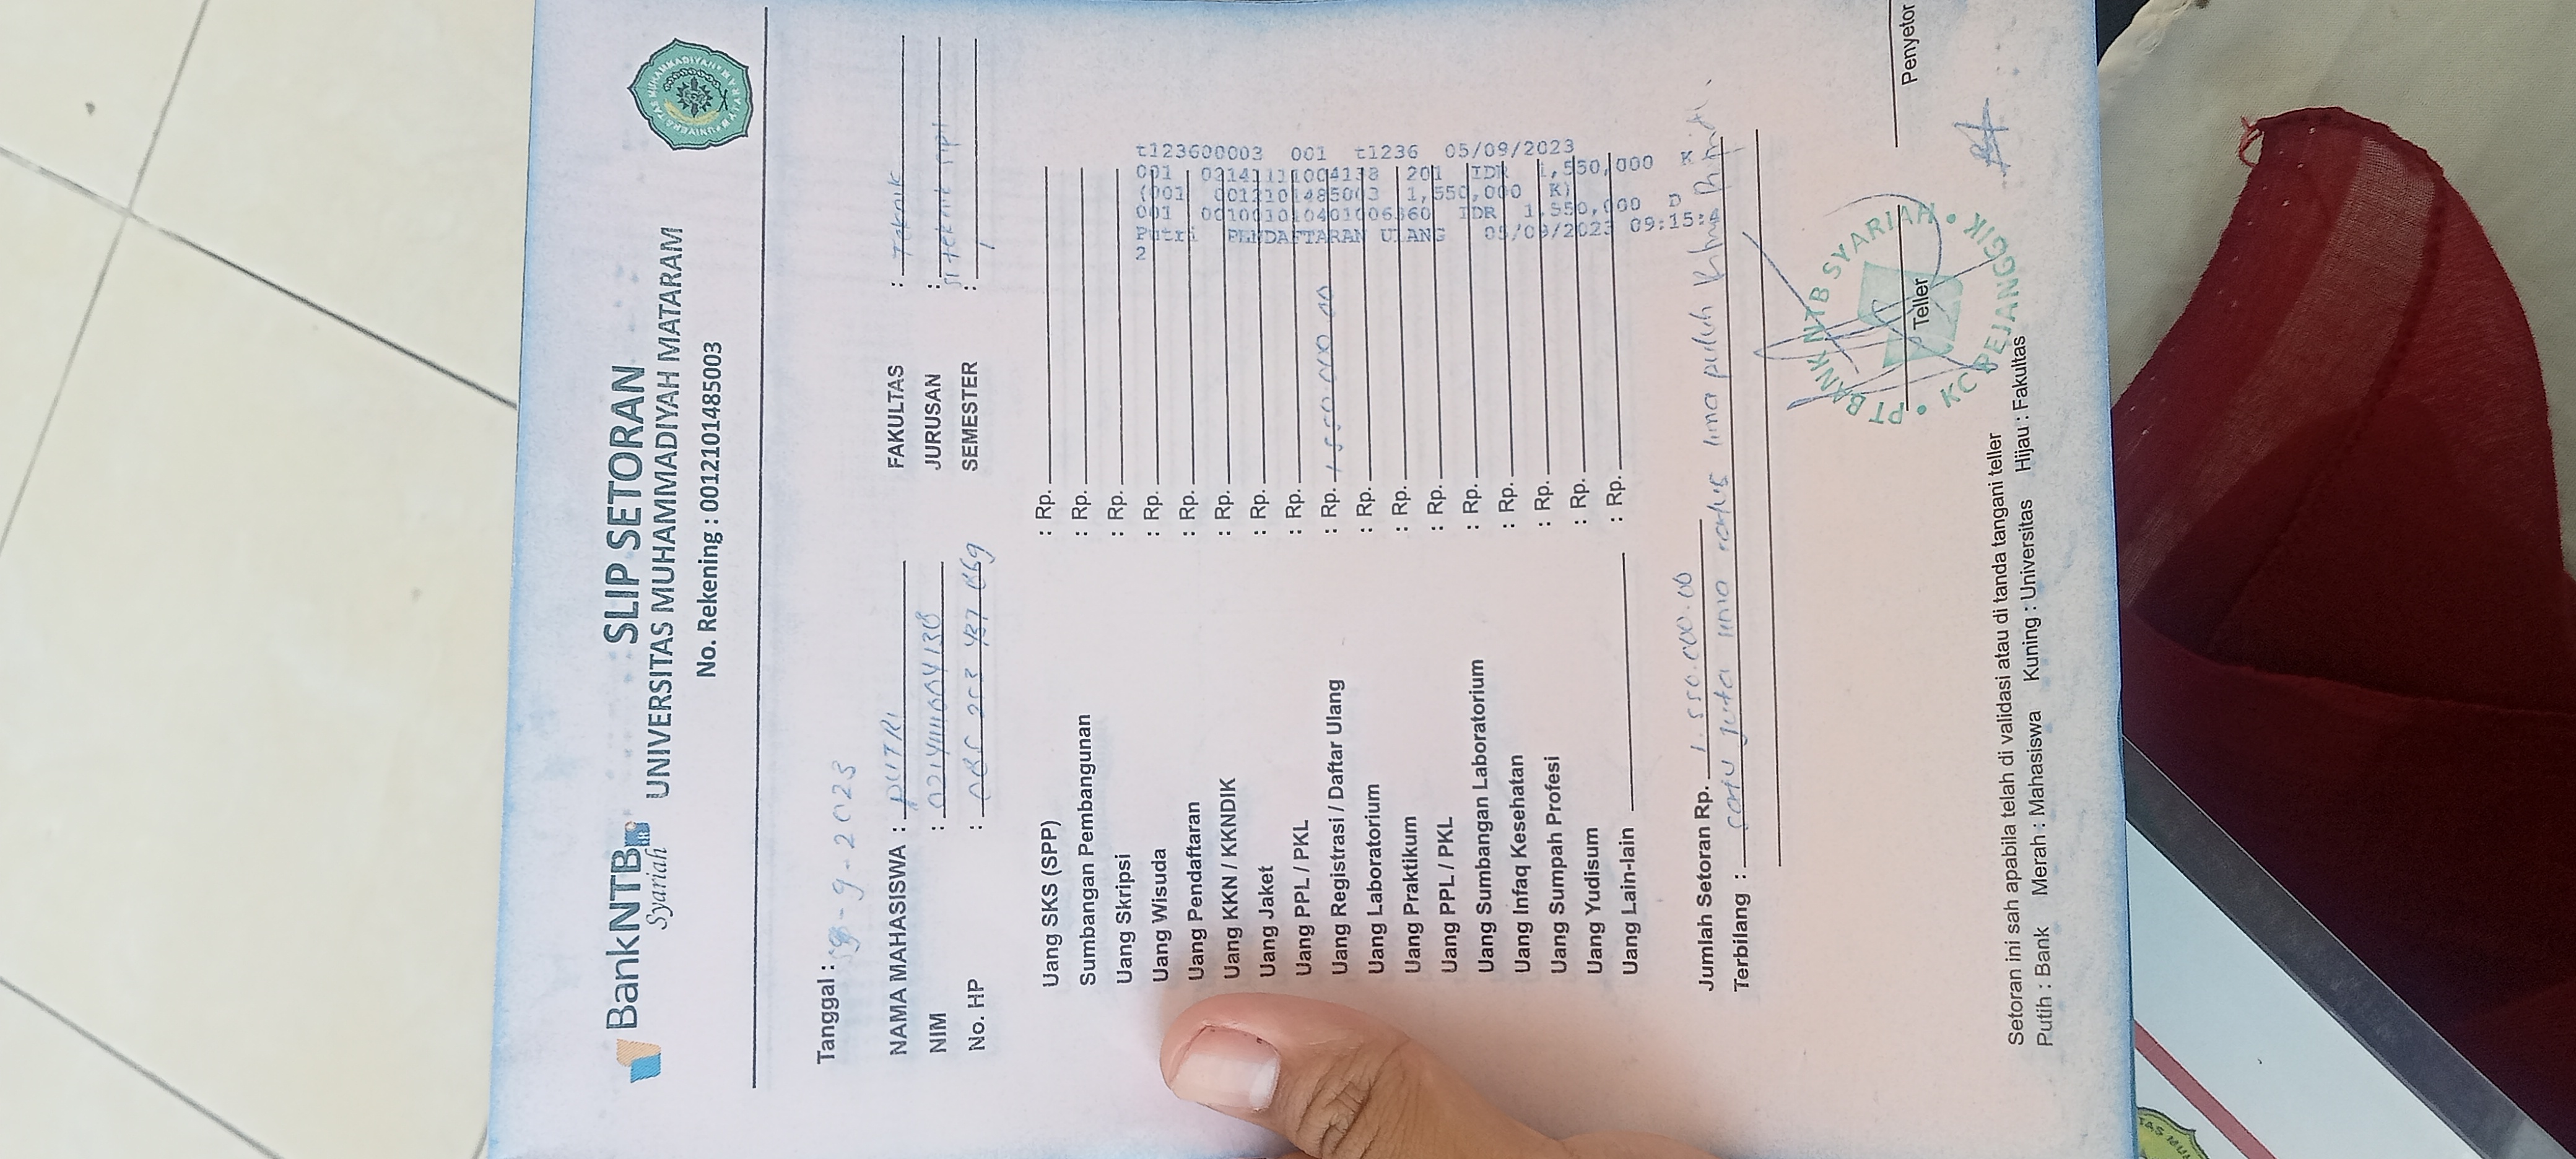 BankNTB
Syariah
SLIP SETORAN
UNIVERSITAS MUHAMMADIYAH MATARAM
No. Rekening : 0012101485003
Tanggal : 9 - 2023
NAMA MAHASISWA : PUTRI FAKULTAS : Teknik
NIM : JURUSAN : S1 teknik sipil
No. HP : SEMESTER : 1
Uang SKS (SPP) : Rp.
Sumbangan Pembangunan : Rp.
Uang Skripsi : Rp.
Uang Wisuda : Rp.
Uang Pendaftaran : Rp.
Uang KKN / KKNDIK : Rp.
Uang Jaket : Rp.
Uang PPL / PKL : Rp.
Uang Registrasi / Daftar Ulang : Rp. 1.550.000.00
Uang Laboratorium : Rp.
Uang Praktikum : Rp.
Uang PPL / PKL : Rp.
Uang Sumbangan Laboratorium : Rp.
Uang Infaq Kesehatan : Rp.
Uang Sumpah Profesi : Rp.
Uang Yudisum : Rp.
Uang Lain-lain : Rp.
t123600003 001 t1236 05/09/2023
001 0214111004138 201 IDR 1,550,000 K
(001 0012101485003 1,550,000 K)
001 IDR 1,550,000 D
Putri PENDAFTARAN ULANG 05/09/2023 09:15:4
2
Jumlah Setoran Rp. 1.550.000.00
Terbilang : satu juta lima ratus lima puluh Ribu Rupiah.
PT BANK NTB SYARIAH • KC PEJANGGIK •
Teller
Penyetor
Setoran ini sah apabila telah di validasi atau di tanda tangani teller
Putih : Bank Merah : Mahasiswa Kuning : Universitas Hijau : Fakultas